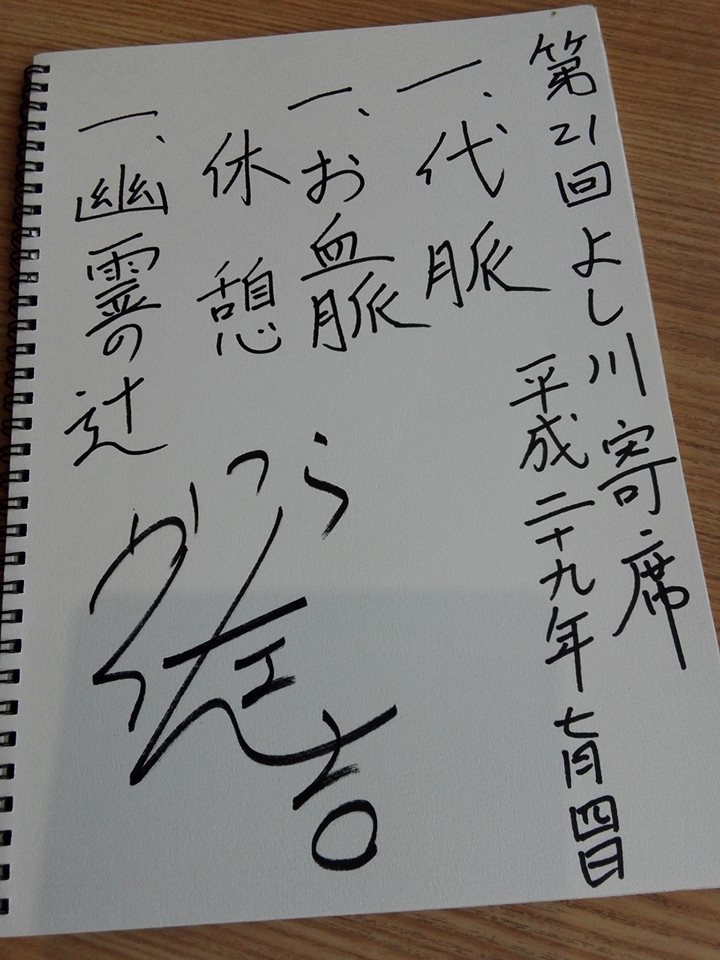 第21回よし川寄席
平成二十九年七月四日
一、代脈
一、お血脈
休憩
一、幽霊の辻
かつら
吉